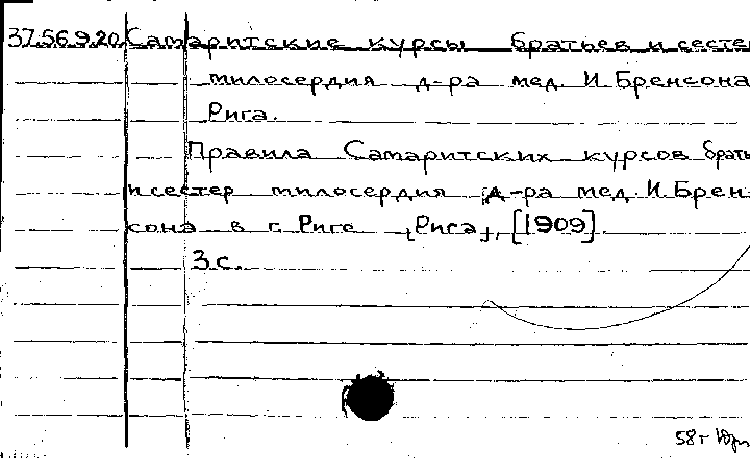 37.56.9.20. Самаритские курсы братьев и сестер
милосердия д-ра мед. И. Бренсона
Рига.
Правила Самаритских курсов брать
и сестер милосердия д-ра мед. И. Брен-
сона в г. Риге [Рига], [1909].
3 с.
58г